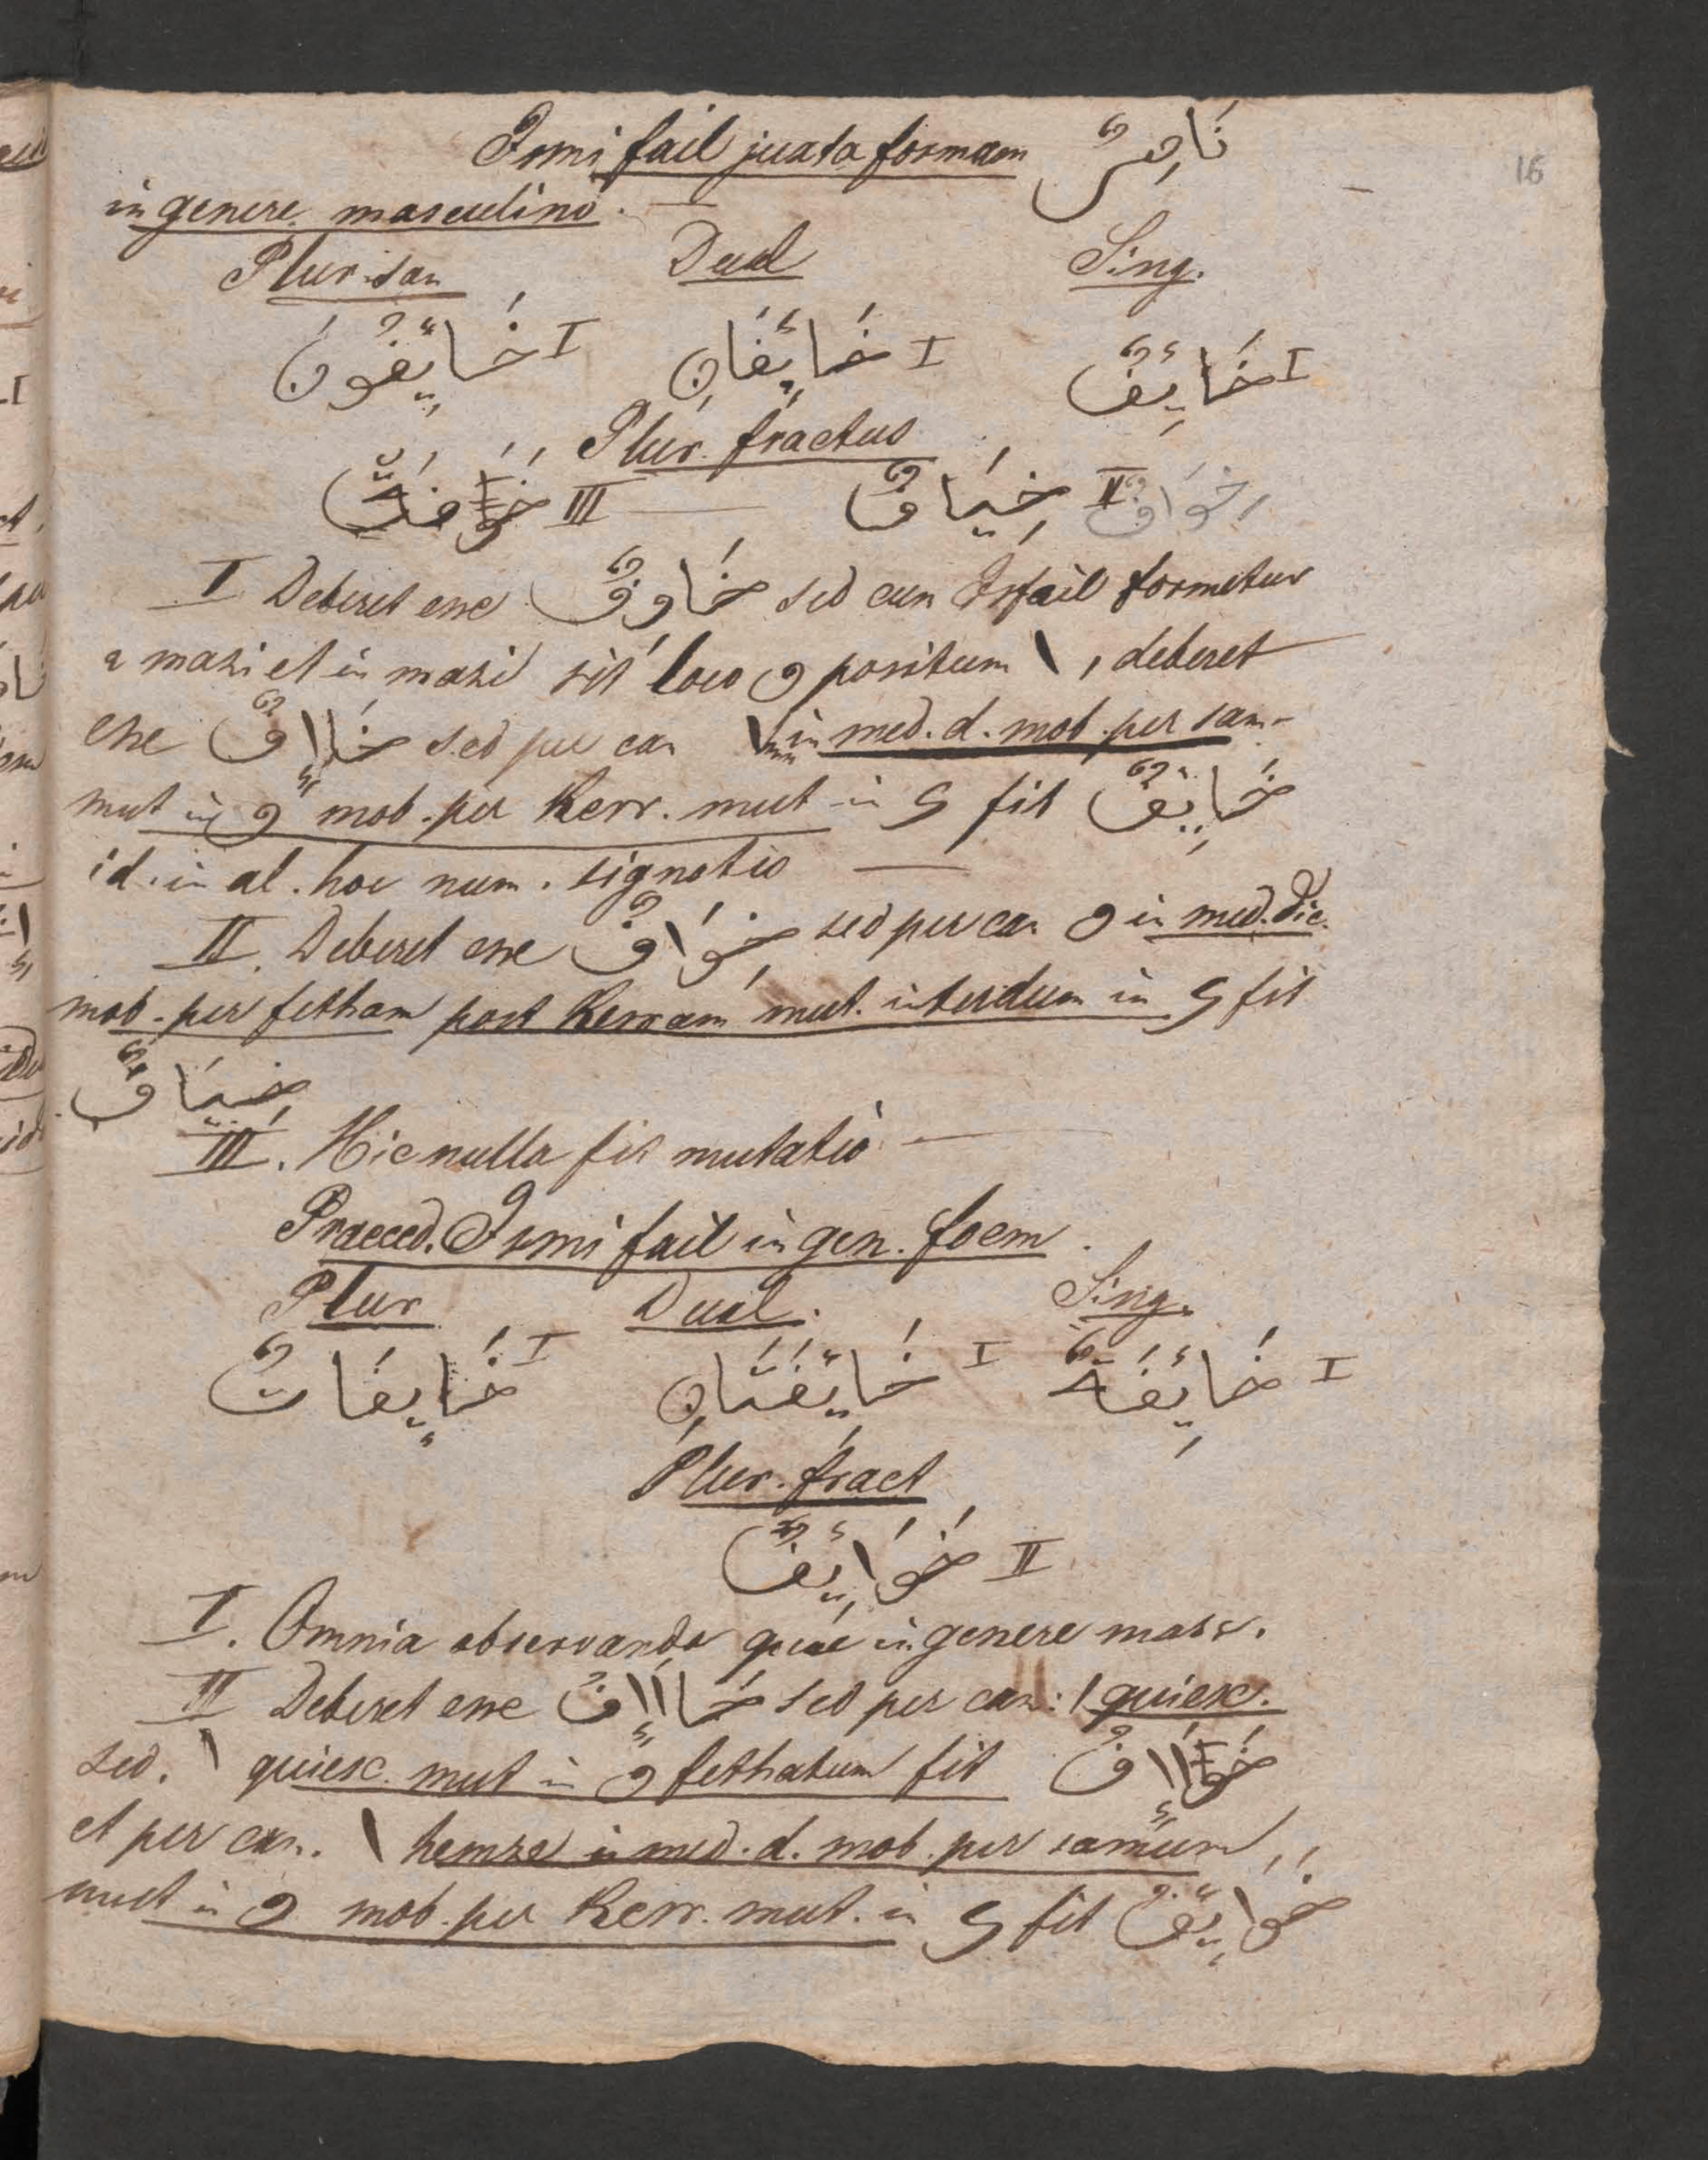 Ismi fail juxta formam نَاصِرٌ
16
in genere masculino. —
Plur. san Dual Sing.
خَائِفُونَ I خَائِفَانِ I خَائِفٌ I
Plur. fractus
III خِيَافٌ II خِوَافٌ
I Deberet esse خَاوِفٌ sed cum Isfail formetur
a mazi et in mazi sit loco و positum ا, deberet
esse خَااِفٌ sed per can ا in med. d. mob. per sam-
mut in و mob. per Kesr. mut in ى fit خَايِفٌ
id. in al. hoc num. signatis —
II. Deberet esse خِوَافٌ sed per can و in med. dic.
mob. per fetham post Kesram mut. interdum in ى fit
خِيَافٌ
III. Hic nulla fit mutatio —
Praeced. Ismi fail in gen. foem.
Plur Dual. Sing.
خَايِفَاتٌ I خَائِفَتَانِ I خَائِفَةٌ I
Plur. fract
خَوَائِفُ II
I. Omnia observanda quae in genere masc.
II Deberet esse خَااَاِفُ sed per can: ا quiesc.
sed. ا quiesc. mut in و fethatum fit خَوَااِفُ
et per can. ا hemze in med. d. mob. per samum,
mut in و mob. per Kesr. mut. in ى fit خوَايِفُ